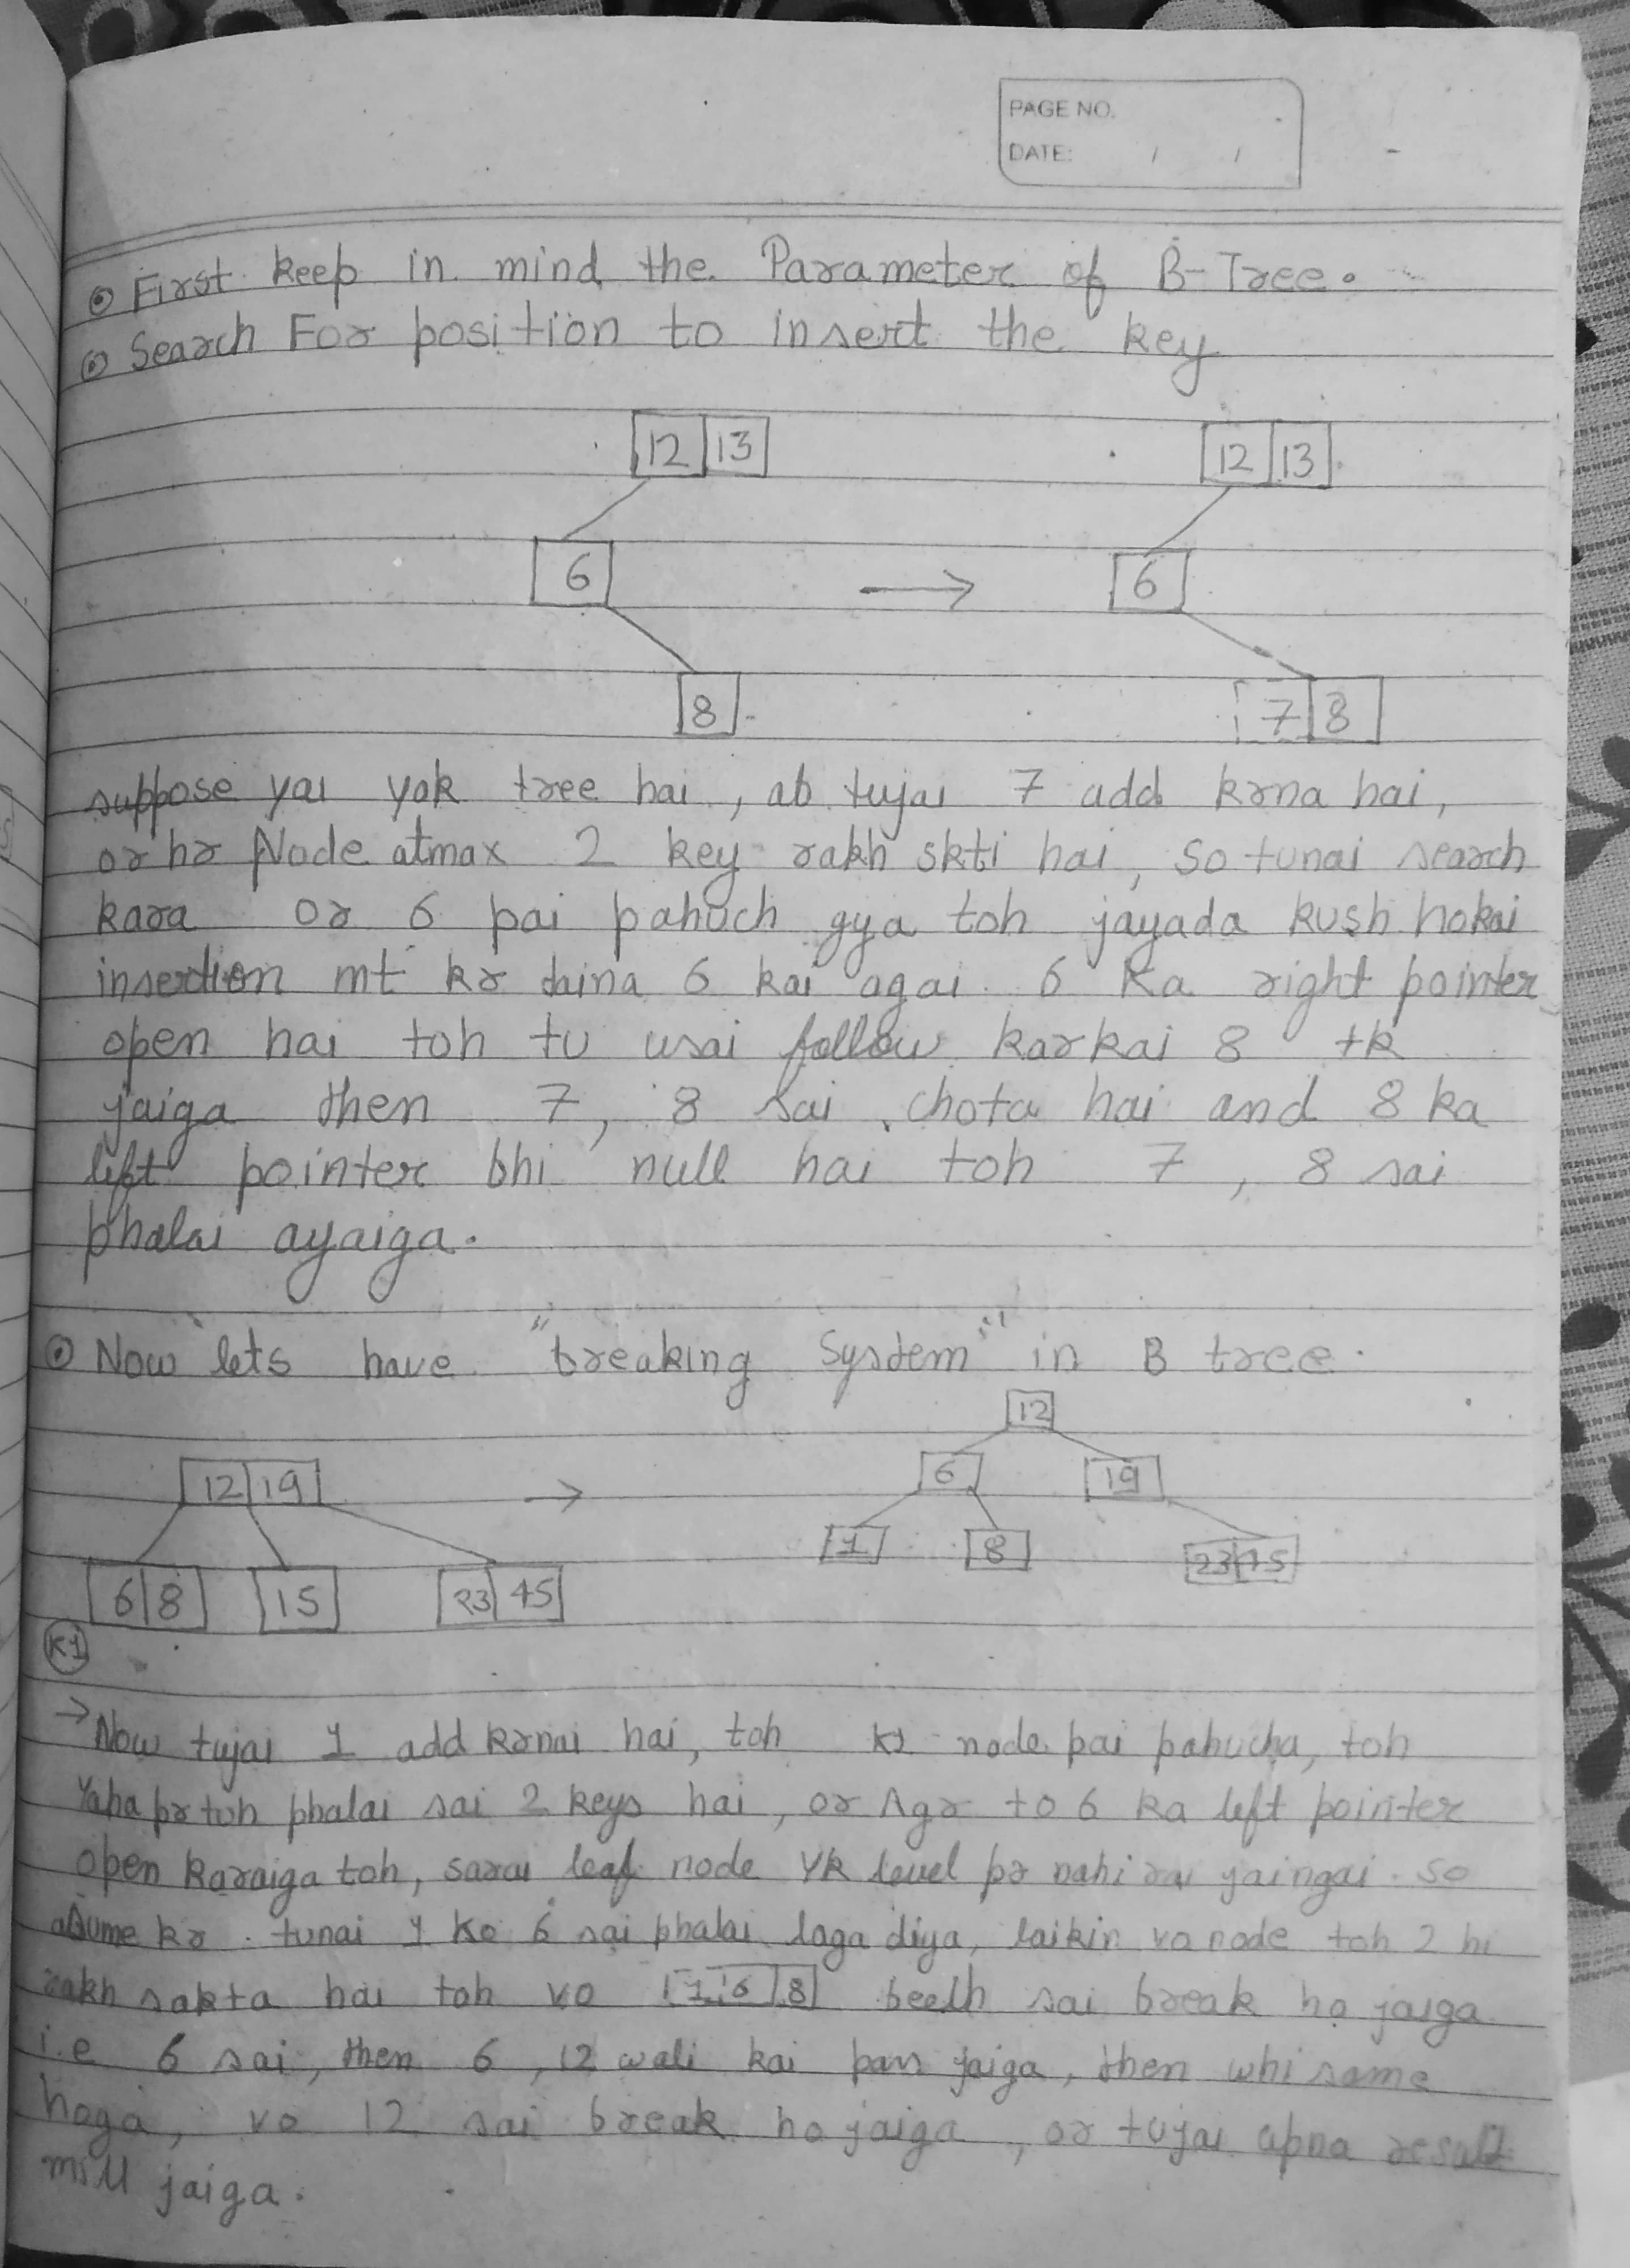 PAGE NO.
DATE: / /
First keep in mind the Parameter of B-Tree.
Search For position to insert the key
12 13
12 13
6
→
6
8
7 8
suppose yai yak tree hai, ab tujai 7 add krna hai,
or hr Node atmax 2 key rakh skti hai, so tunai search
kara or 6 pai pahuch gya toh jayada kush hokai
insertion mt kr daina 6 kai agai. 6 Ka right pointer
open hai toh tu usai follow karkai 8 tk
jaiga then 7, 8 sai chota hai and 8 ka
left pointer bhi null hai toh 7, 8 sai
phalai ayaiga.
Now lets have "breaking System" in B tree.
12
12 19
→
6
19
1
8
23 45
6 8
15
23 45
K1
→ Now tujai 1 add krnai hai, toh K1 node pai pahucha, toh
Yaha pr toh phalai sai 2 keys hai, or Agr to 6 ka left pointer
open karaiga toh, sarai leaf node Yk level pr nahi rai jaingai. so
assume kr. tunai 1 ko 6 sai phalai laga diya, laikin vo node toh 2 hi
rakh sakta hai toh vo 1 6 8 beech sai break ho jaiga
i.e 6 sai, then 6, 12 wali kai pas jaiga, then whi same
hoga, vo 12 sai break ho jaiga, or tujai apna result
mill jaiga.